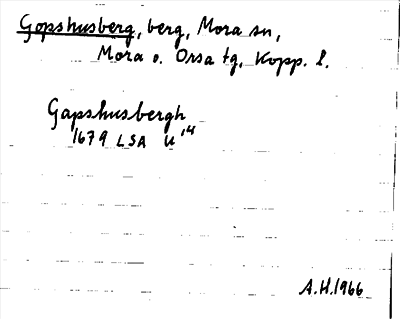 Gopshusberg, berg, Mora sn,
Mora o. Orsa tg, Kopp. l.
Gapshusbergh
1679 LSA U¹⁴
A.H. 1966